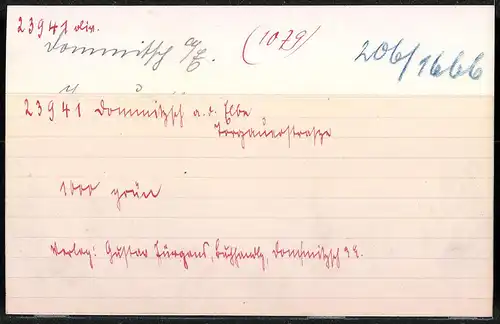 23941 div.
Dommitsch a/E. (1079) 206/1666
23941 Dommitzsch a. d. Elbe
Torgauerstrasse
1000 grün
Verlag: Gustav Jürgens, Buchhandlg, Dommitzsch a E.